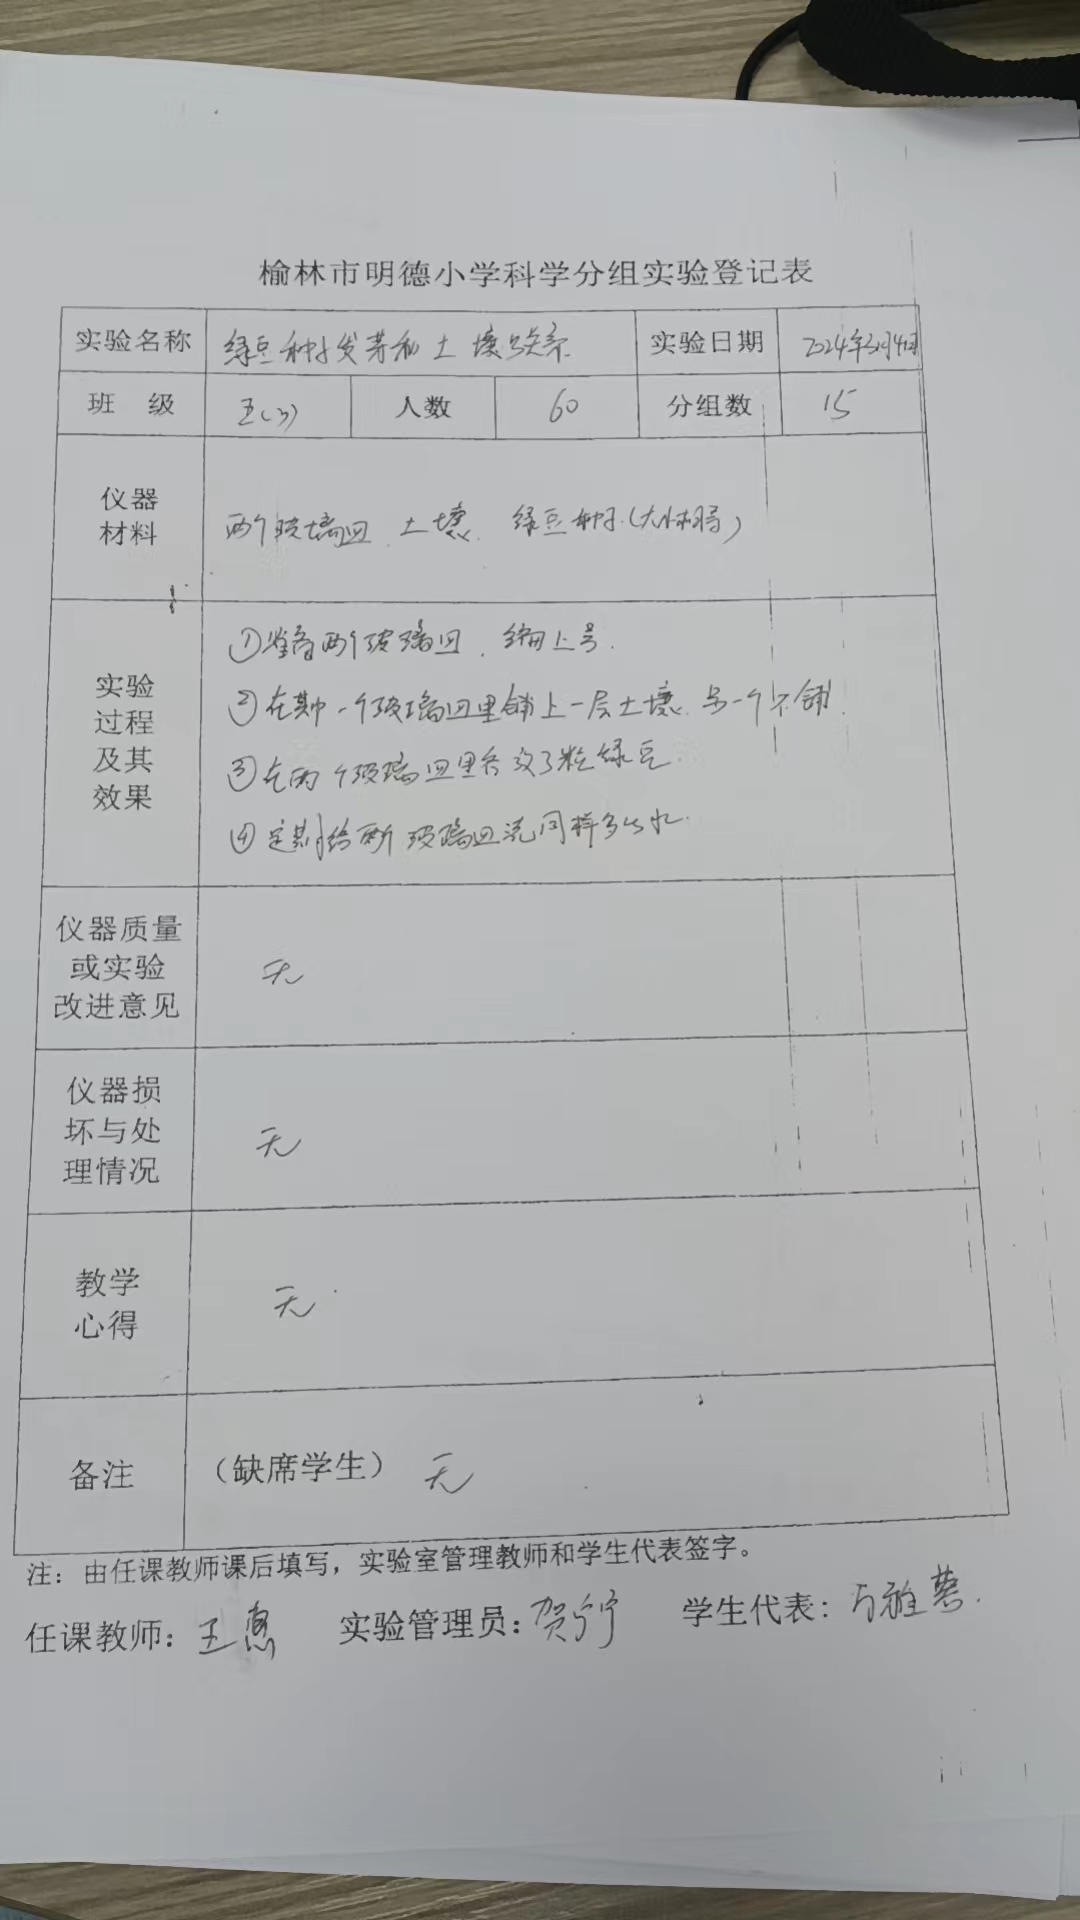 榆林市明德小学科学分组实验登记表
实验名称 绿豆种子发芽和土壤的关系 实验日期 2024年3月4日
班 级 五(3) 人数 60 分组数 15
仪器
材料
两个玻璃皿、土壤、绿豆种子(大小相同)
实验
过程
及其
效果
①准备两个玻璃皿,编上号.
②在其中一个玻璃皿里铺上一层土壤,另一个不铺.
③在两个玻璃皿里各放 粒绿豆.
④定期给两个玻璃皿浇同样多的水.
仪器质量
或实验
改进意见
无
仪器损
坏与处
理情况
无
教学
心得
无
备注 (缺席学生) 无
注:由任课教师课后填写,实验室管理教师和学生代表签字。
任课教师:王惠 实验管理员:贺宁宁 学生代表: